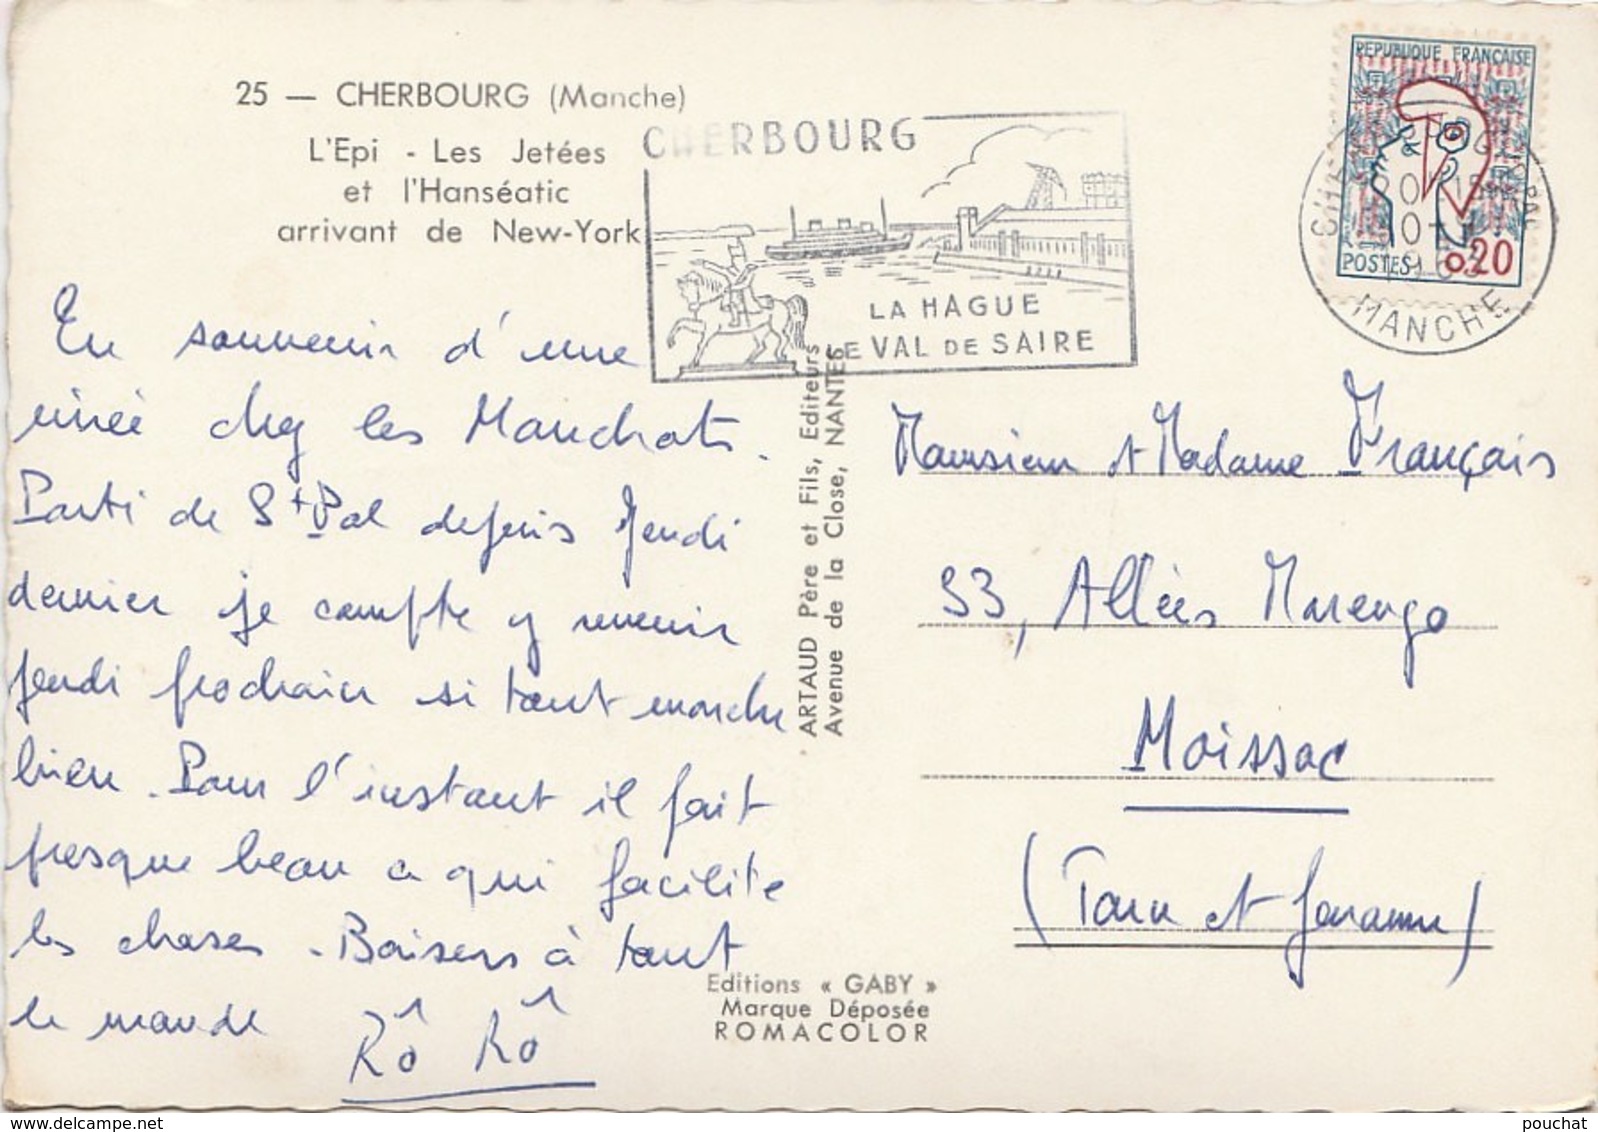 25 — CHERBOURG (Manche)
L'Epi - Les Jetées
et l'Hanséatic
arrivant de New-York
CHERBOURG
LA HAGUE
LE VAL DE SAIRE
REPUBLIQUE FRANÇAISE
POSTES 0,20
MANCHE
En souvenir d'une
virée chez les Manchots.
Parti de St Pal depuis Jeudi
dernier je compte y revenir
jeudi prochain si tout marche
bien. Pour l'instant il fait
presque beau ce qui facilite
les choses. Baisers à tout
le monde
Rô Rô
ARTAUD Père et Fils, Editeurs
Avenue de la Close, NANTES
Editions « GABY »
Marque Déposée
ROMACOLOR
Monsieur et Madame Français
33, Allées Marengo
Moissac
(Tarn et Garonne)
www.delcampe.net
pouchat